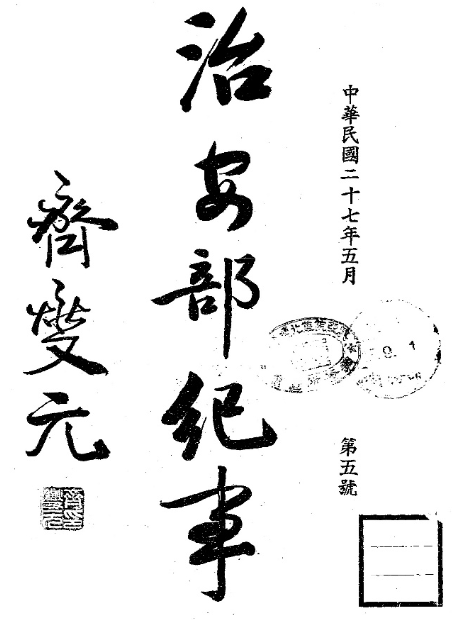 中華民國二十七年五月
第五號
治安部紀事
齊燮元